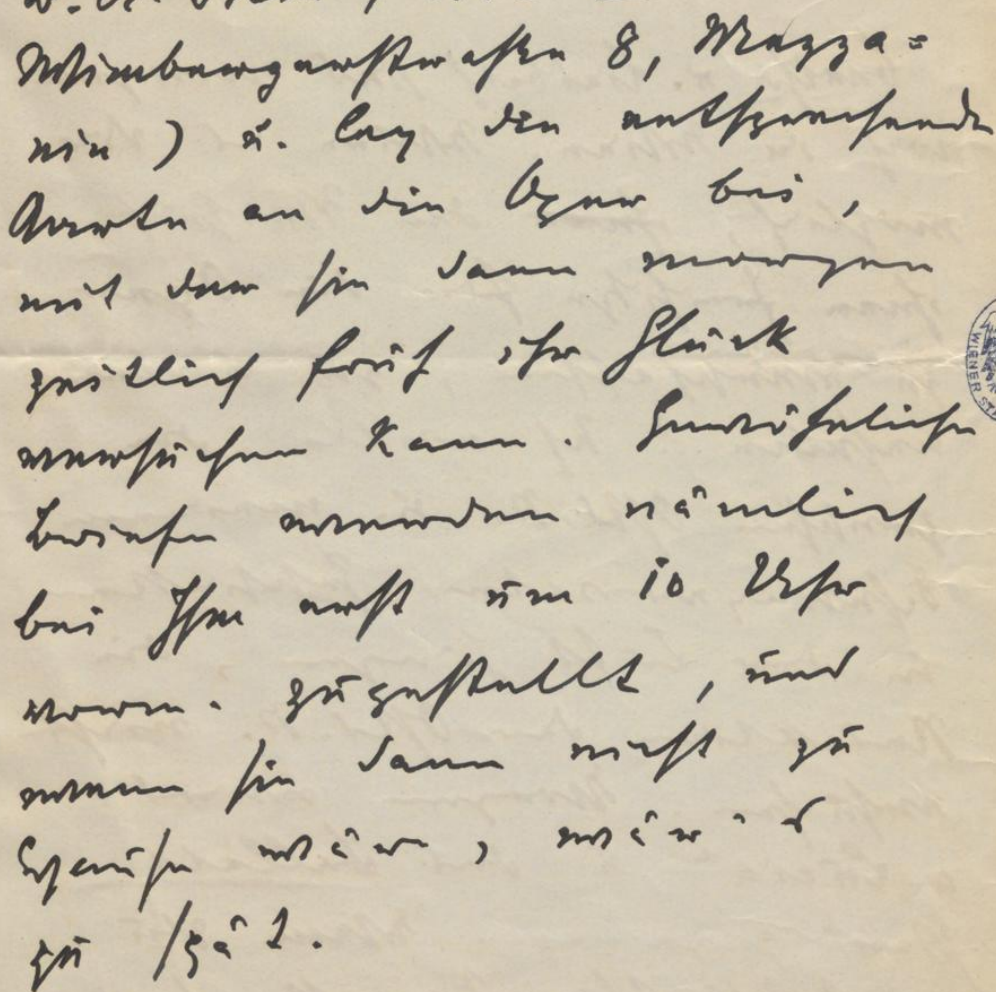 Wimbergerstraße 8, Mezza=
nin) u. leg die entsprechende
Karte an die Oper bei,
mit der sie dann morgen
zeitlich früh ihr Glück
versuchen kann. Gewöhnliche
Briefe werden nämlich
bei Ihr erst um 10 Uhr
vorm. zugestellt, und
wenn sie dann nicht zu
Hause wär, wär's
zu spät.
WIENER